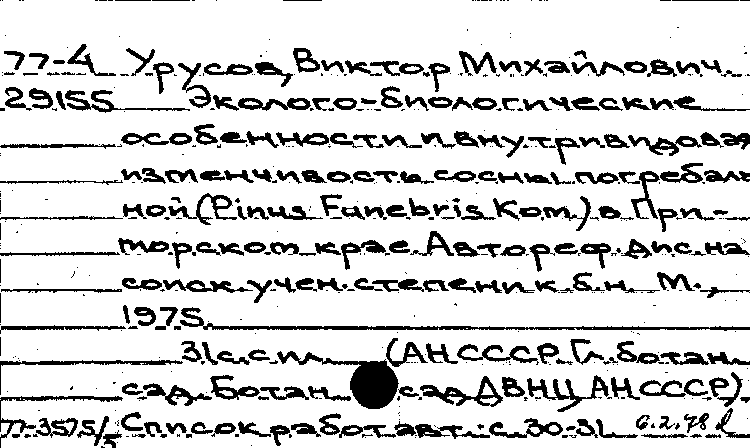 77-4 Урусов, Виктор Михайлович.
29155 Эколого-биологические
особенности и внутривидовая
изменчивость сосны погребаль
ной (Pinus Funebris Kom.) в При-
морском крае. Автореф. дис. на
соиск. учен. степени к. б. н. М.,
1975.
31с. с ил. (АН СССР. Гл. ботан.
сад. Ботан. сад ДВНЦ АН СССР)
77-3575/5 Список работ авт.: с. 30-31 6.2.78